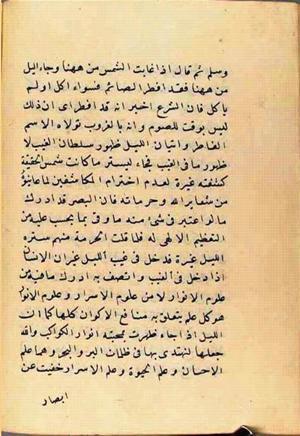 وسلم ثم قال اذا غابت الشمس من ههنا وجاء الليل
من ههنا فقد افطر الصائم فسواء اكل اولم
ياكل فان الشرع اخبر انه قد افطر اى ان ذلك
ليس بوقت للصوم وانه بالغروب تولاه الاسم
الفاطر واتيان الليل ظهور سلطان الغيب لا
ظهور ما فى الغيب فجاء ليستر ما كانت شمس الحقيقة
كشفته غيرة لعدم احترام المكاشفين لما عاينوه
من شعاير الله وحرماته فان البصر قد ادرك
ما لو اعتبر فى شىء منه ما وفى بما يجب عليه من
التعظيم الالهى له فلما قلت الحرمة منهم ستره
الليل غيرة فدخل فى غيب الليل غيران الانسان
اذا دخل فى الغيب واتصف به ادرك ما فيه من
علوم الانوار لا من علوم الاسرار وعلوم الانوار
هو كل علم يتعلق به منافع الاكوان كلها كما ان
الليل اذا جاء ظهرت بمجيئه انوار الكواكب والله
جعلها لنهتدى بها فى ظلمات البر والبحر وهما علم
الاحسان وعلم الحيوة وعلم الاسرار خفيت عن
ابصار